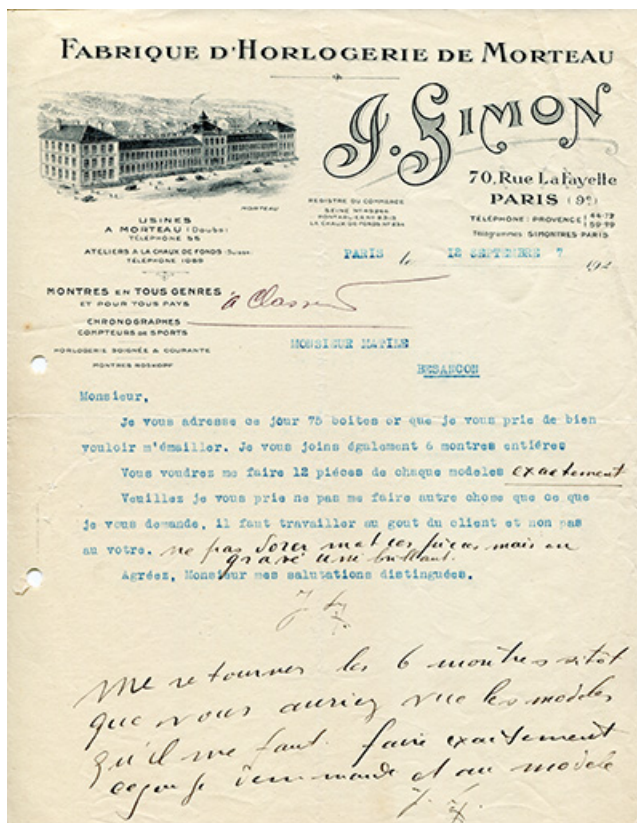 FABRIQUE D'HORLOGERIE DE MORTEAU
J. SIMON
70, Rue LaFayette
PARIS (9e)
TÉLÉPHONE: PROVENCE 44-72
59-99
Télégrammes SIMONTRES-PARIS
MORTEAU
REGISTRE DU COMMERCE
USINES
A MORTEAU (Doubs)
TÉLÉPHONE 55
ATELIERS A LA CHAUX DE FONDS (Suisse)
TÉLÉPHONE 1089
PARIS le 12 SEPTEMBRE 7 192
MONTRES EN TOUS GENRES
ET POUR TOUS PAYS
à Classer
CHRONOGRAPHES
COMPTEURS DE SPORTS
HORLOGERIE SOIGNÉE & COURANTE
MONTRES ROSKOPF
MONSIEUR MATILE
BESANCON
Monsieur,
Je vous adresse ce jour 75 boites or que je vous prie de bien
vouloir m'émailler. Je vous joins également 6 montres entiéres
Vous voudrez me faire 12 piéces de chaque modeles exactement
Veuillez je vous prie ne pas me faire autre chose que ce que
je vous demande, il faut travailler au gout du client et non pas
au votre. ne pas dorer mat les pièces mais en
gravé uni brillant.
Agréez, Monsieur mes salutations distinguées.
Me retourner les 6 montres sitôt
que vous auriez vue les modeles
qu'il me faut. faire exactement
demande et au modele